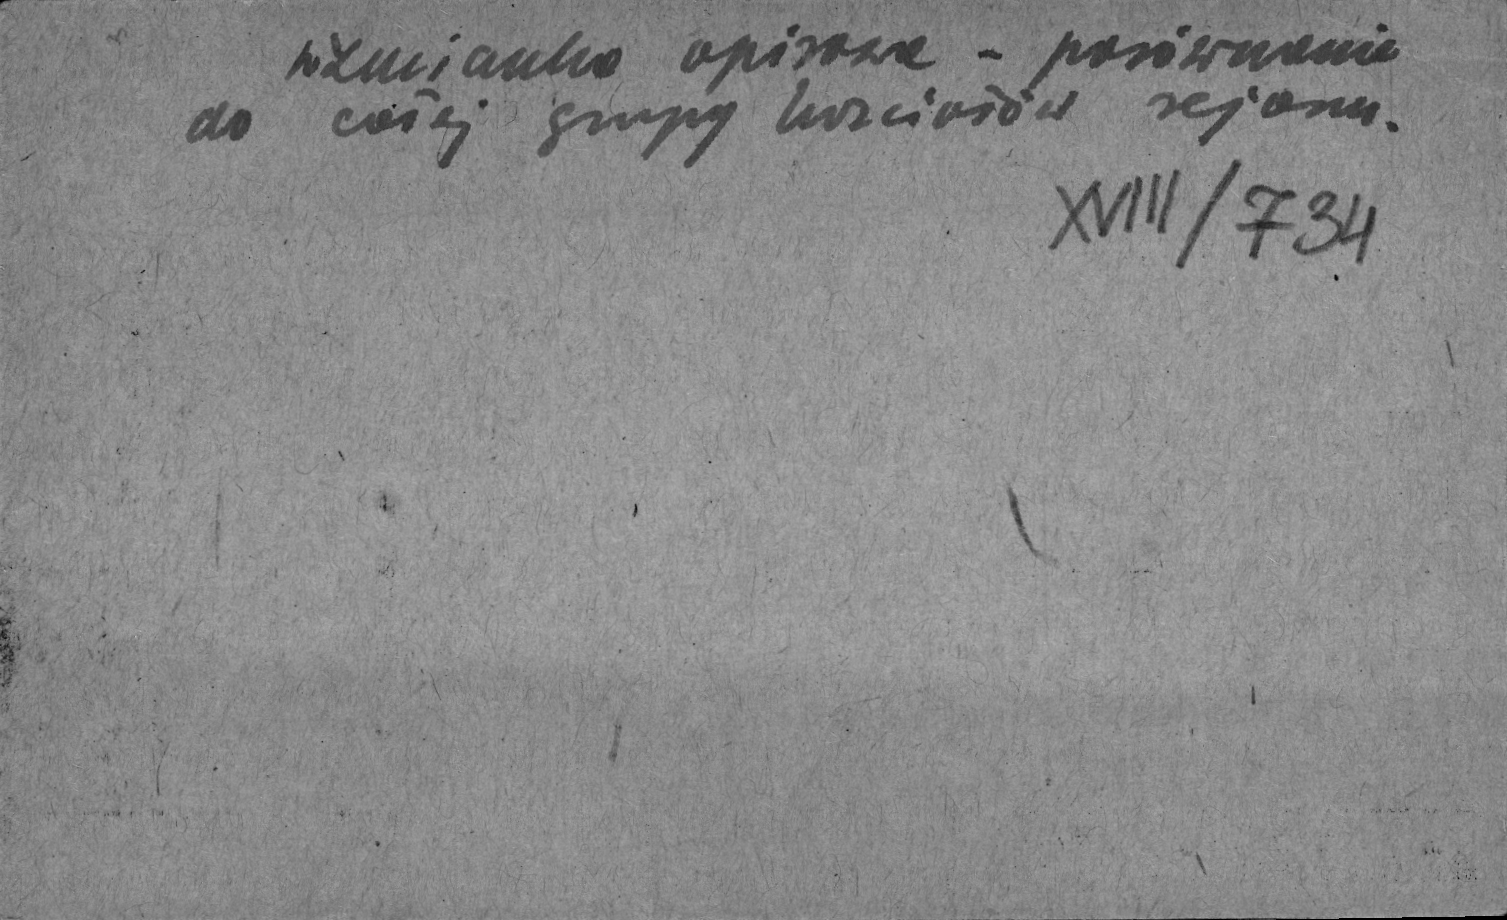 wzmianka opisowa - porównanie
do całej grupy kościołów rejonu.
XVIII/734